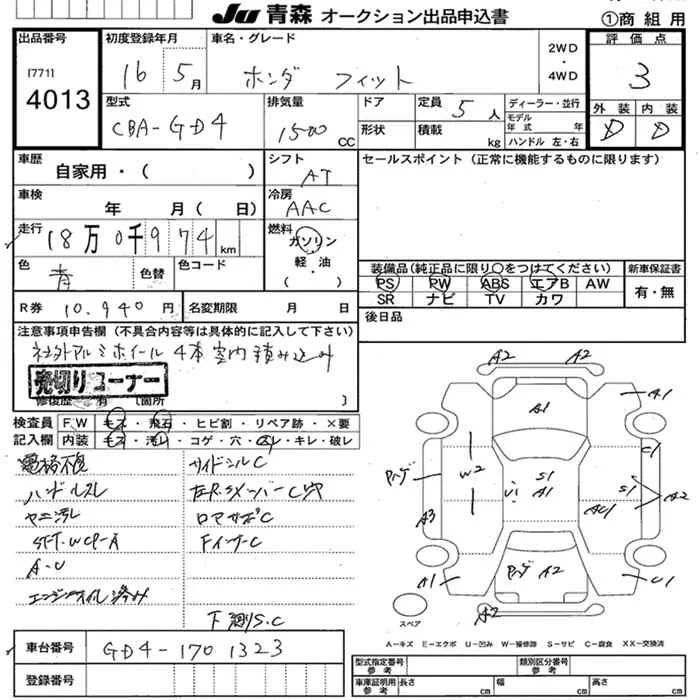 JU 青森 オークション出品申込書
①商組用
出品番号
[771]
4013
初度登録年月
16 5月
車名・グレード
ホンダ フィット
2WD
・
4WD
評価点
3
外装 内装
D D
型式
CBA-GD4
排気量
1500 CC
ドア
形状
定員 5人
積載 kg
ディーラー・並行
モデル
年式 年
ハンドル 左・右
車歴
自家用・( )
シフト
AT
セールスポイント (正常に機能するものに限ります)
車検
年 月( 日)
冷房
AAC
走行
18万0千974km
燃料
ガソリン
軽・油
( )
色
青
色替
色コード
装備品(純正品に限り○をつけてください)
新車保証書
PS PW ABS エアB AW
SR ナビ TV カワ
有・無
R券 10,940円
名変期限 月 日
後日品
注意事項申告欄 (不具合内容等は具体的に記入して下さい)
社外アルミホイール 4本 室内積み込み
売切りコーナー
修復歴 有 (箇所 )
検査員
記入欄
FW キズ・飛石・ヒビ割・リペア跡・×要
内装 キズ・汚れ・コゲ・穴・スレ・キレ・破レ
電格不良
ハンドルスレ
ヤニ汚レ
A-U
サイドシルC
下廻S.C
A2
A1
A1
C1
W2
S1
A1
U1
S1
A2
A3
AC1
A1
A2
C1
A2
スペア
A-キズ E-エクボ U-凹み W-補修跡 S-サビ C-腐食 XX-交換済
車台番号
GD4-1701323
登録番号
型式指定番号
参考
類別区分番号
参考
車庫証明用
参考
長さ cm
幅 cm
高さ cm